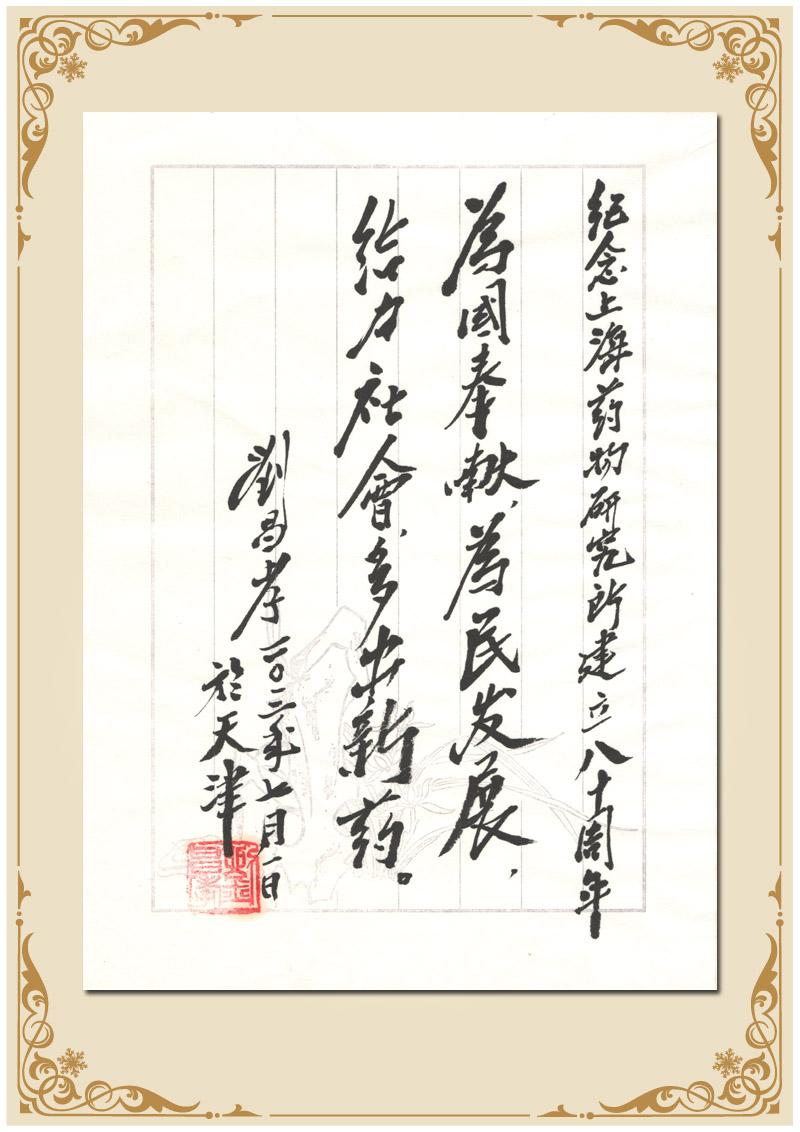 纪念上海药物研究所建立八十周年
為國奉献,為民发展,
给力社會,多出新药。
劉昌孝二〇一二年七月一日
於天津